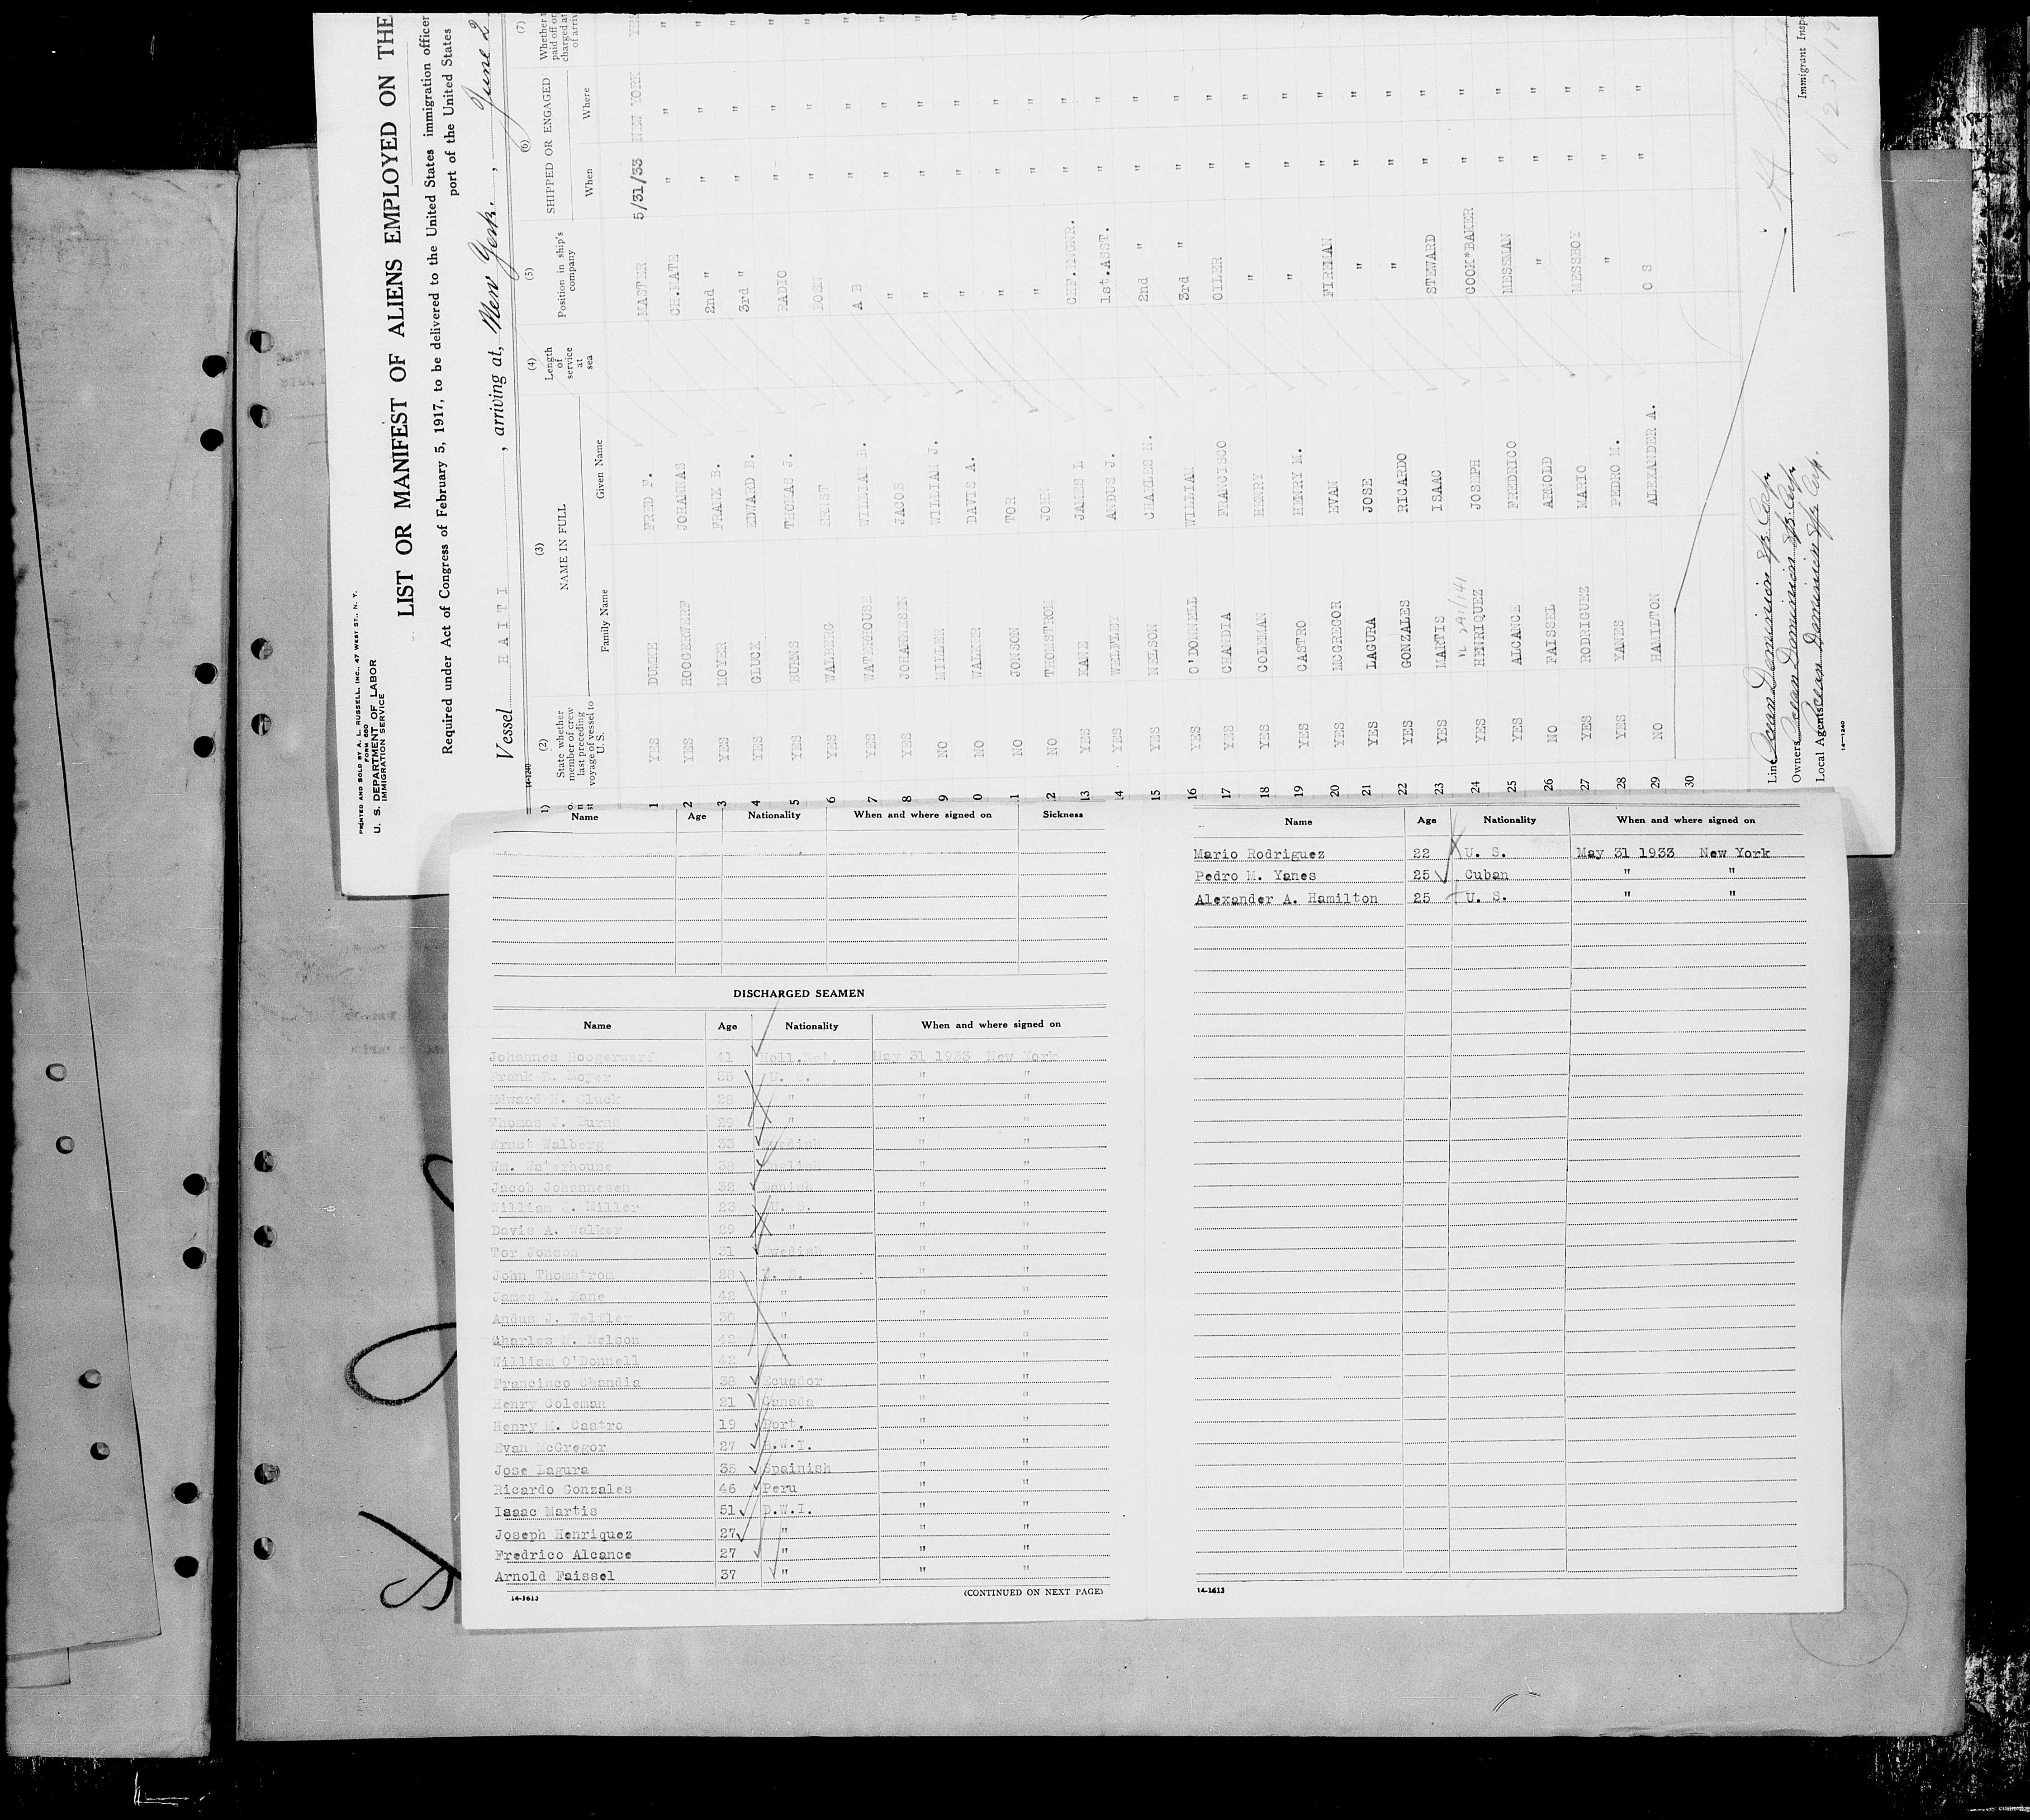 PRINTED AND SOLD BY A. L. RUSSELL, INC., 47 WEST ST., N. Y.
FORM 680
U. S. DEPARTMENT OF LABOR
IMMIGRATION SERVICE
LIST OR MANIFEST OF ALIENS EMPLOYED ON THE
Required under Act of Congress of February 5, 1917, to be delivered to the United States immigration officer
port of the United States
Vessel HAITI, arriving at, New York., June 2
14-1240
(2) (3) (4) (5) (6) (7)
State whether member of crew last preceding voyage of vessel to U. S. NAME IN FULL Length of service at sea Position in ship's company SHIPPED OR ENGAGED
Family Name Given Name When Where
1 YES FRED F. MASTER 5/31/33 NEW YORK YES
2 YES HOOGERWERF JOHANNAS CH.MATE " " "
3 YES MOYER FRANK B. 2nd " " " "
4 YES GLUCK EDWARD B. 3rd " " " "
5 YES BURNS THOMAS J. RADIO " " "
6 YES WALBERG ERNST BOSN " " "
7 YES WATERHOUSE WILLIAM B. A B " " "
8 YES JOHANNESEN JACOB " " " "
9 NO MILLER WILLIAM J. " " " "
0 NO WALKER DAVIS A. " " " "
1 NO JONSON TOR " " " "
2 NO THOMSTROM JOHN " " " "
13 YES KANE JAMES L CHF.ENGNR. " " "
14 YES WELFLEY ANDUS J. 1st.ASST. " " "
15 YES NELSON CHARLES N. 2nd " " " "
16 YES O'DONNELL WILLIAM 3rd " " " "
17 YES CHANDIA FRANCISCO OILER " " "
18 YES COLEMAN HENRY " " " "
19 YES CASTRO HENRY M. " " " "
20 YES MCGREGOR EVAN FIREMAN " " "
21 YES LAGURA JOSE " " " "
22 YES GONZALES RICARDO " " " "
23 YES MARTIS ISAAC STEWARD " " "
24 YES HENRIQUEZ JOSEPH COOK*BAKER " " "
25 YES ALCANCE FREDRICO MESSMAN " " "
26 NO FAISSEL ARNOLD " " " "
27 YES RODRIGUEZ MARIO MESSBOY " " "
28 YES YANES PEDRO M. " " " "
29 NO HAMILTON ALEXANDER A. O S " "
30
Line Ocean Dominion S/S Corp.
Owners Ocean Dominion S/S Corp.
Local Agents Ocean Dominion S/S Corp.
14-1240
Immigrant Inspe
6/23/19
Name Age Nationality When and where signed on Sickness
DISCHARGED SEAMEN
Name Age Nationality When and where signed on
Johannes Hoogerwerf 41 Holl.Nat. May 31 1933 New York
Frank B. Moyer 35 U. S. " "
Edward H. Gluck 28 " " "
Thomas J. Burns 29 " " "
Ernst Walberg 33 Swedish " "
Wm. Waterhouse 38 English " "
Jacob Johannesen 32 Danish " "
William J. Miller 23 U. S. " "
Davis A. Walker 29 " " "
Tor Jonson 31 Swedish " "
John Thomstrom 28 U. S. " "
James L. Kane 42 " " "
Andus J. Welfley 30 " " "
Charles N. Nelson 42 " " "
William O'Donnell 42 " " "
Francisco Chandia 38 Ecuador " "
Henry Coleman 21 Canada " "
Henry M. Castro 19 Port. " "
Evan McGregor 27 B.W.I. " "
Jose Lagura 35 Spainish " "
Ricardo Gonzales 46 Peru " "
Isaac Martis 51 D.W.I. " "
Joseph Henriquez 27 " " "
Fredrico Alcance 27 " " "
Arnold Faissel 37 " " "
14-1613 (CONTINUED ON NEXT PAGE)
Name Age Nationality When and where signed on
Mario Rodriguez 22 U. S. May 31 1933 New York
Pedro M. Yanes 25 Cuban " "
Alexander A. Hamilton 25 U. S. " "
14-1613